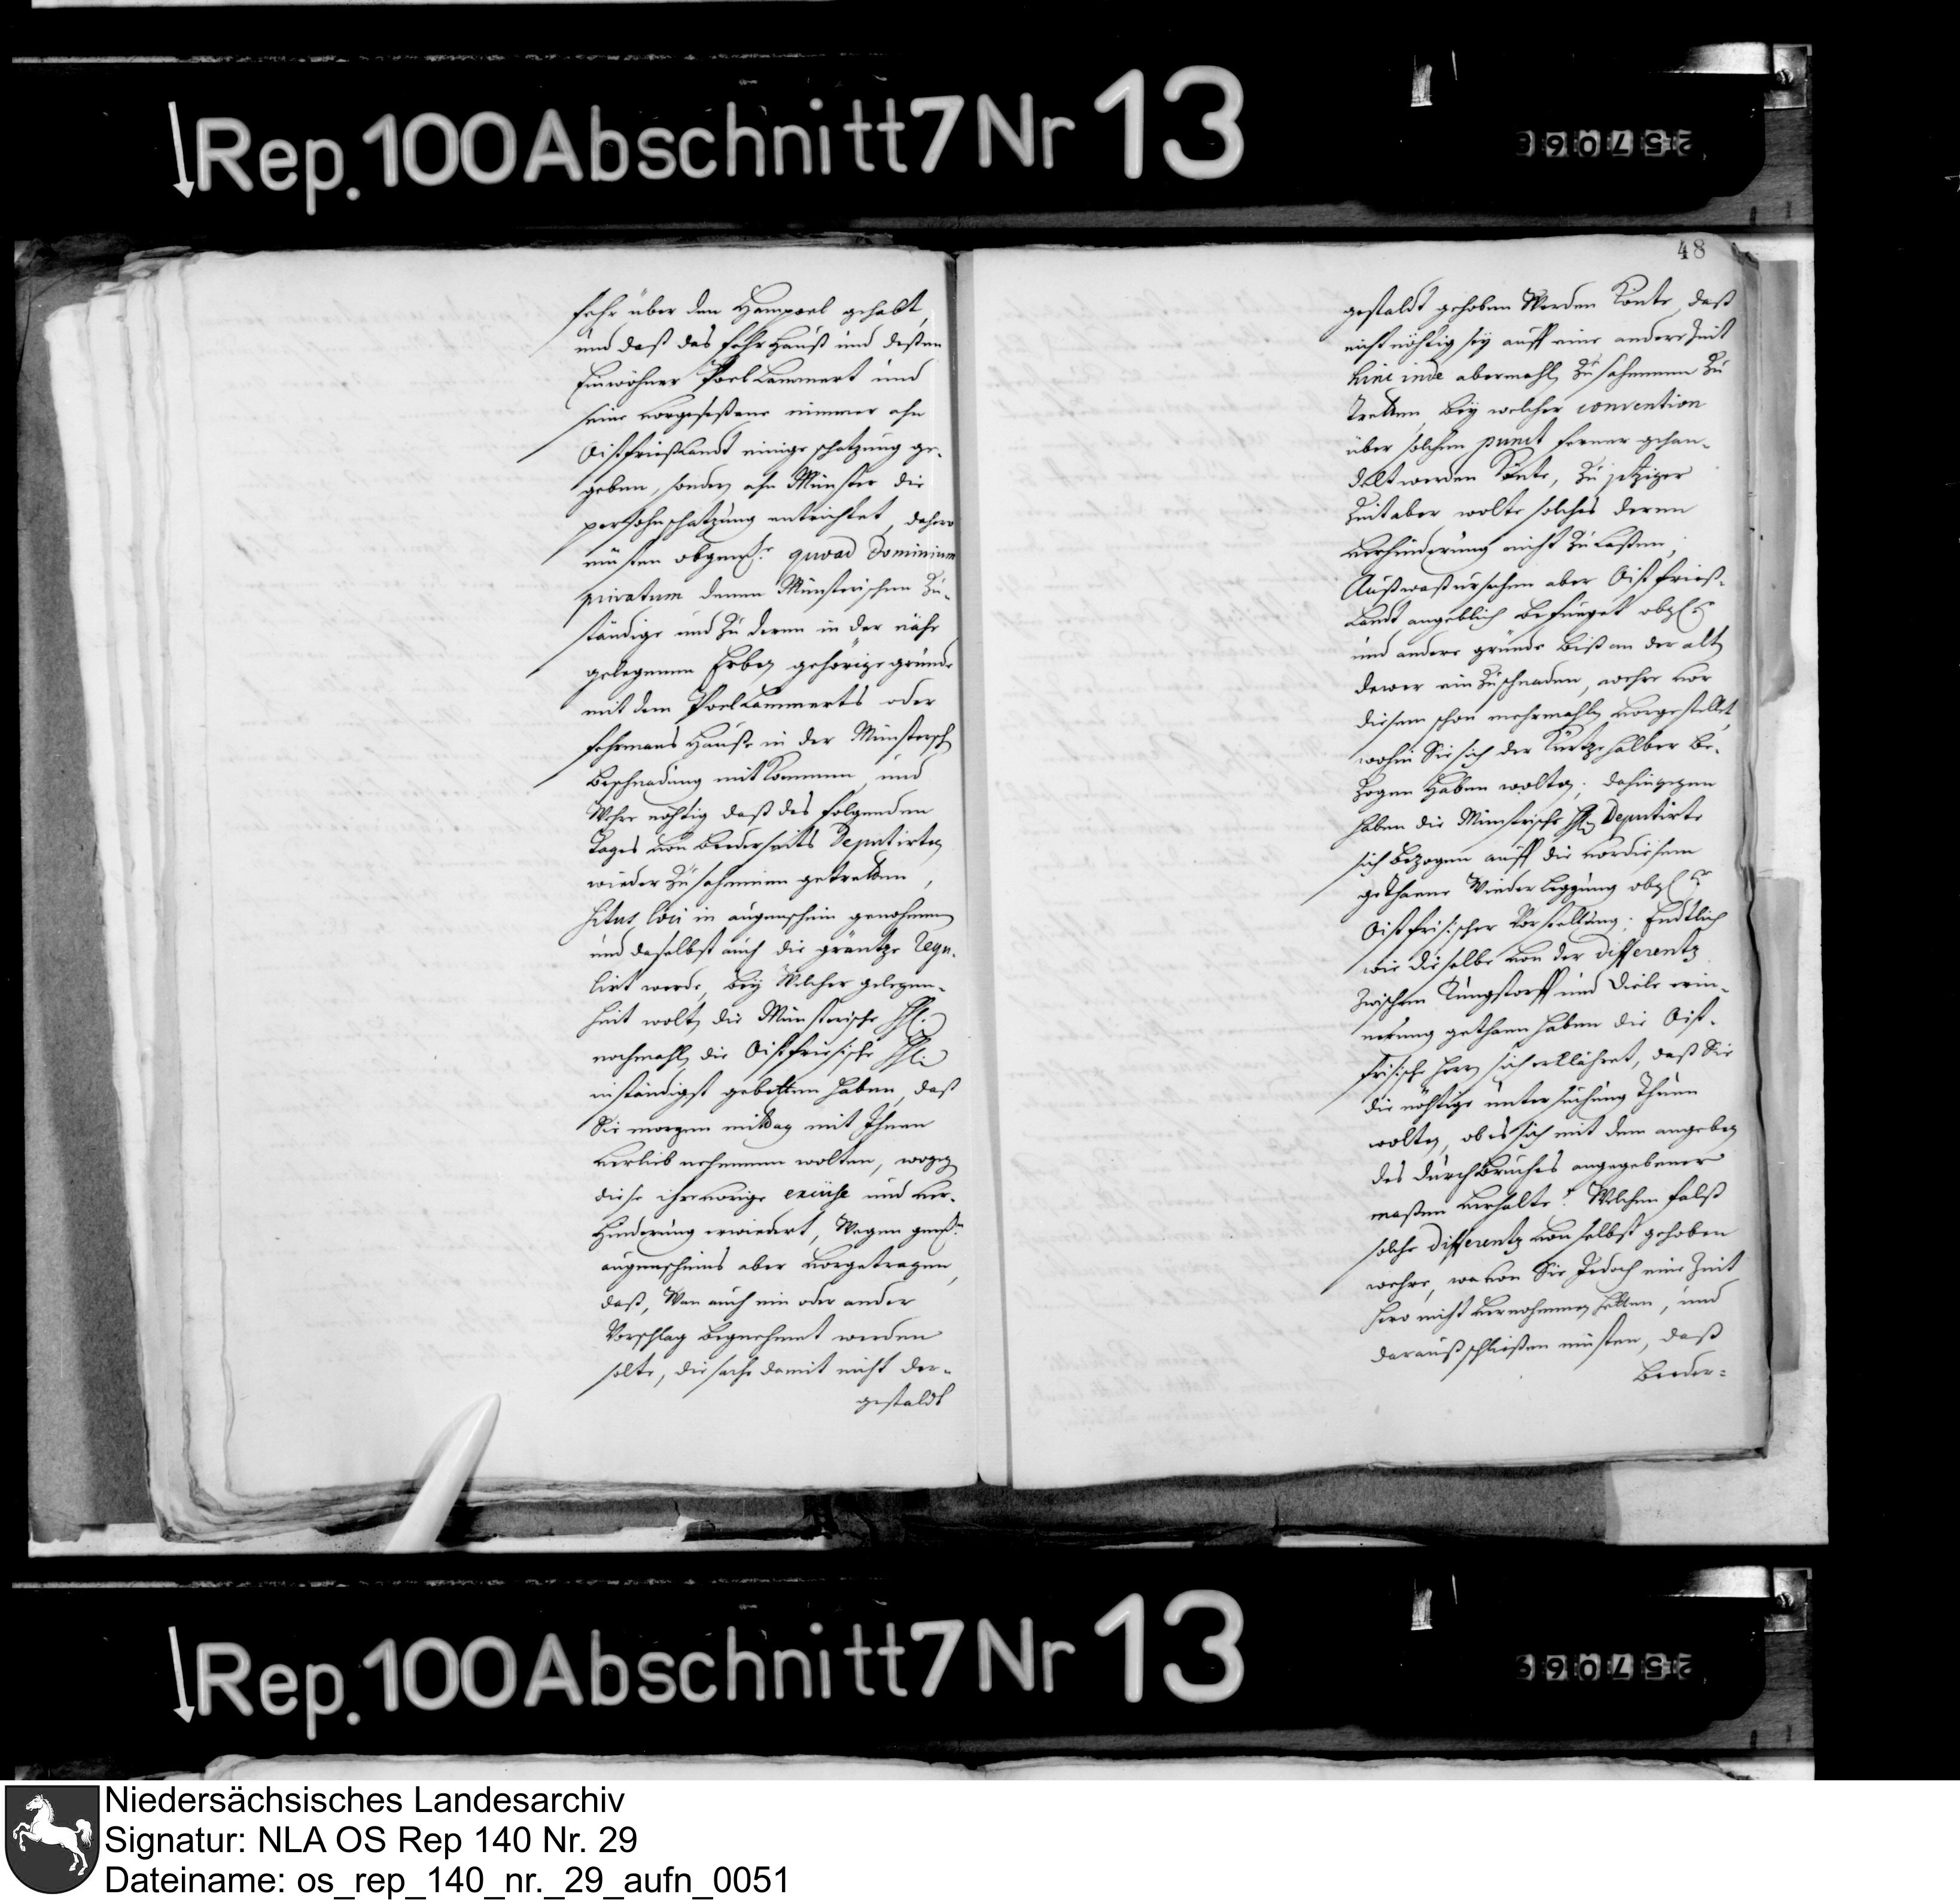 Rep. 100 Abschnitt 7 Nr 13
fehr über den Hampoel gehabt,
und daß das fehr Hauß und deßen
Einwöhner Poel Lammert und
seine vorgeseßene nimmer ahn
Oistfrießlandt einige schatzung ge-
geben, sondern ahn Münster die
persohnschatzung entrichtet, dahero
müsten obgemt.r quoad dominium
privatum denen Münsterischen Zu-
ständige und zu deren in der nähe
gelegenen Erben gehörige gründe
mit dem Poel Lammerts oder
fehrmans Hauße in der Münstersch
Beschnadung mit kommen, und
Wehre nöhtig daß des folgenden
Tages von Beederseits Deputirten
wieder Zusahmmen getretten,
situs loci in augenschein genohmen
und daselbst auch die gräntze regu-
lirt werde, bey Welcher gelegen-
heit wolten die Münsterische HH.
nochmahlen die Oistfriesische HH.
inständigst gebetten haben, daß
Sie morgen mittag mit Ihnen
verlieb nehmmen wolten, wogegen
diese ihre vorige excuse und ver-
hinderung erwiedert, Wegen
augenscheins aber vorgetragen,
daß, Wan auch ein oder ander
Vorschlag begnehmet werden
solte, die sache damit nicht der-
gestaldt
48
gestaldt gehoben Werden Konte, daß
nicht nöhtig sey auff eine andere Zeit
hinc inde abermahlen Zusahmmen Zu
tretten, bey welcher convention
über solchen punct ferner gehan-
delt werden Könte, Zu jetziger
Zeit aber wolte solches deren
verhinderung nicht Zulaßen;
Auß waß ursachen aber Oistfrieß-
Landt angeblich befueget
und andere gründe biß an der alten
dewer einzuschnaden, wehre vor
diesem schon mehrmahlen vorgestellet
wohin Sie sich der Kürtze halber be-
zogen haben wolten; dahingegen
haben die Münsterische HH. Deputirte
sich bezogen auff die vor diesem
gethaene Wiederleggung
Oistfrisischer Vorstellung; Endtlich
wie dieselbe von der differentz
zwischen Lungstorff und Diele erin-
nerung gethaen haben die Oist-
frisische Herren sich erklähret, daß Sie
die nöhtige untersuchung Thuen
wolten, ob es sich mit dem angeben
des durchbruches angegebener
maßen verhalte? Welchen falß
solche differentz von selbst gehoben
wehre, wovon Sie Jedoch eine Zeit
hero nicht vernohmmen hetten, und
darauß schließen müsten, daß
Beeder-
Rep. 100 Abschnitt 7 Nr 13
Niedersächsisches Landesarchiv
Signatur: NLA OS Rep 140 Nr. 29
Dateiname: os_rep_140_nr._29_aufn_0051